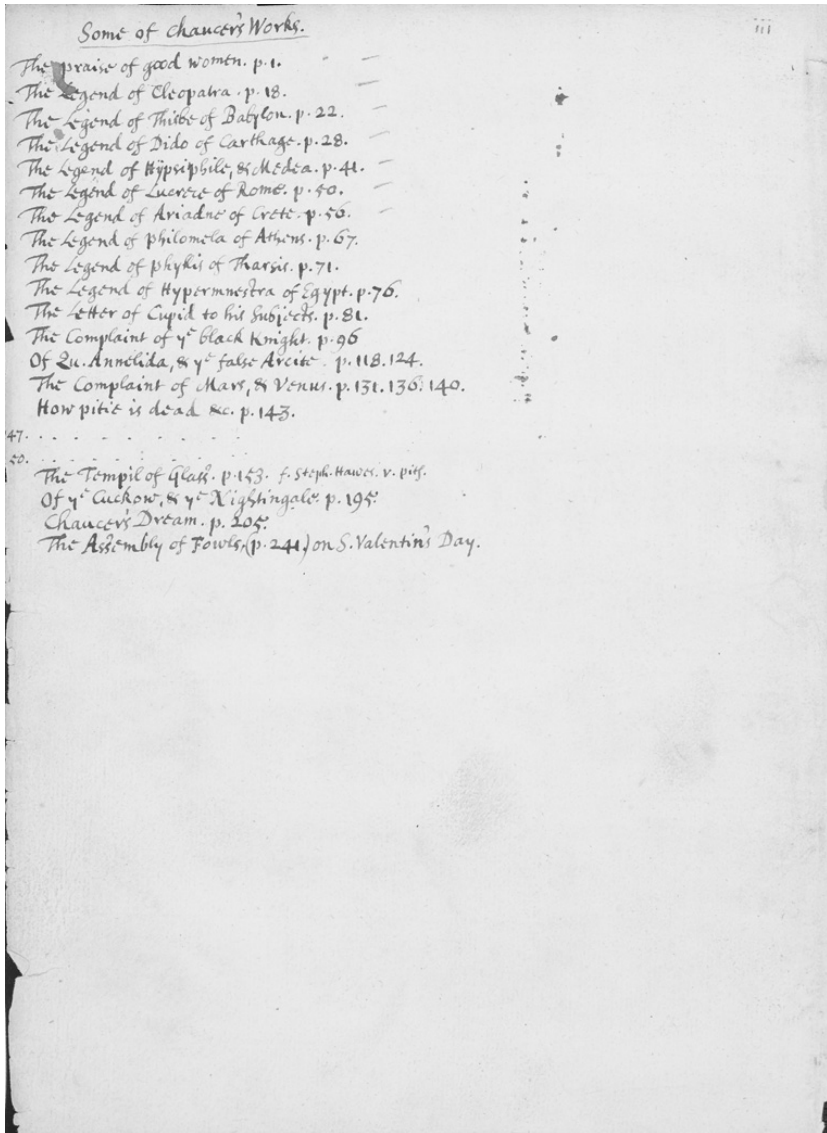 iii
Some of Chaucer's Works.
The praise of good women. p. 1.
The Legend of Cleopatra. p. 18.
The Legend of Thisbe of Babylon. p. 22.
The Legend of Dido of Carthage. p. 28.
The Legend of Hÿpsiphile, & Medea. p. 41.
The Legend of Lucrece of Rome. p. 50.
The Legend of Ariadne of Crete. p. 56.
The Legend of Philomela of Athens. p. 67.
The Legend of Phyllis of Tharsis. p. 71.
The Legend of Hypermnestra of Egypt. p. 76.
The Letter of Cupid to his Subjects. p. 81.
The Complaint of yᵉ black Knight. p. 96
Of Qu. Annelida, & yᵉ false Arcite. p. 118. 124.
The Complaint of Mars, & Venus. p. 131. 136. 140.
How pitie is dead &c. p. 143.
47. . . . . . . .
50. . . . . . . .
The Templ of Glass. p. 153. f. Steph. Hawes. v. pits.
Of yᵉ Cuckow, & yᵉ Nightingale. p. 195.
Chaucer's Dream. p. 205.
The Assembly of Fowls, (p. 241.) on S. Valentin's Day.